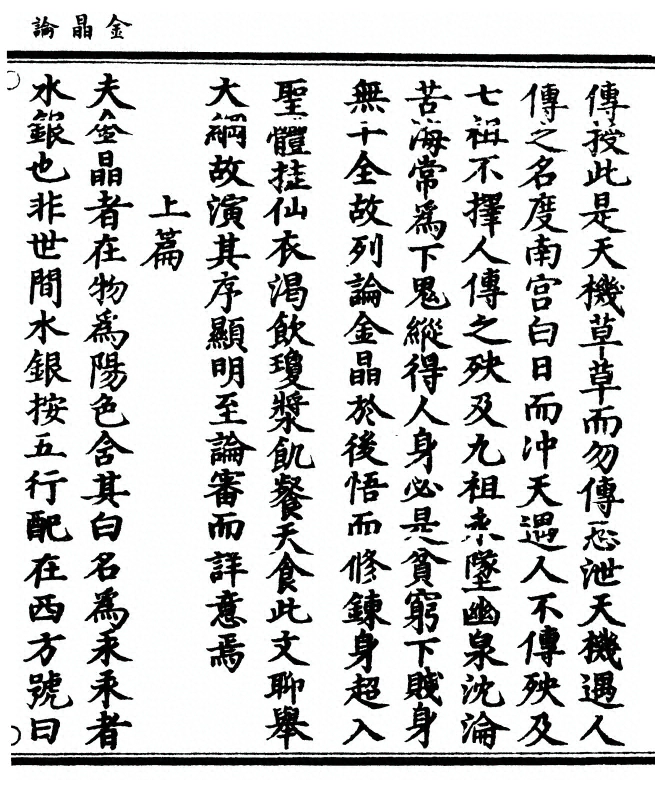 金晶論
傳授此是天機草草而勿傳恐泄天機遇人
傳之名度南宮白日而冲天遇人不傳殃及
七祖不擇人傳之殃及九祖永墜幽泉沈淪
苦海常爲下鬼縱得人身必是貧窮下賤身
無十全故列論金晶於後悟而修鍊身超入
聖體挂仙衣渴飲瓊漿飢餐天食此文聊舉
大綱故演其序顯明至論審而詳意焉
上篇
夫金晶者在物爲陽色含其白名爲汞汞者
水銀也非世間水銀按五行配在西方號曰